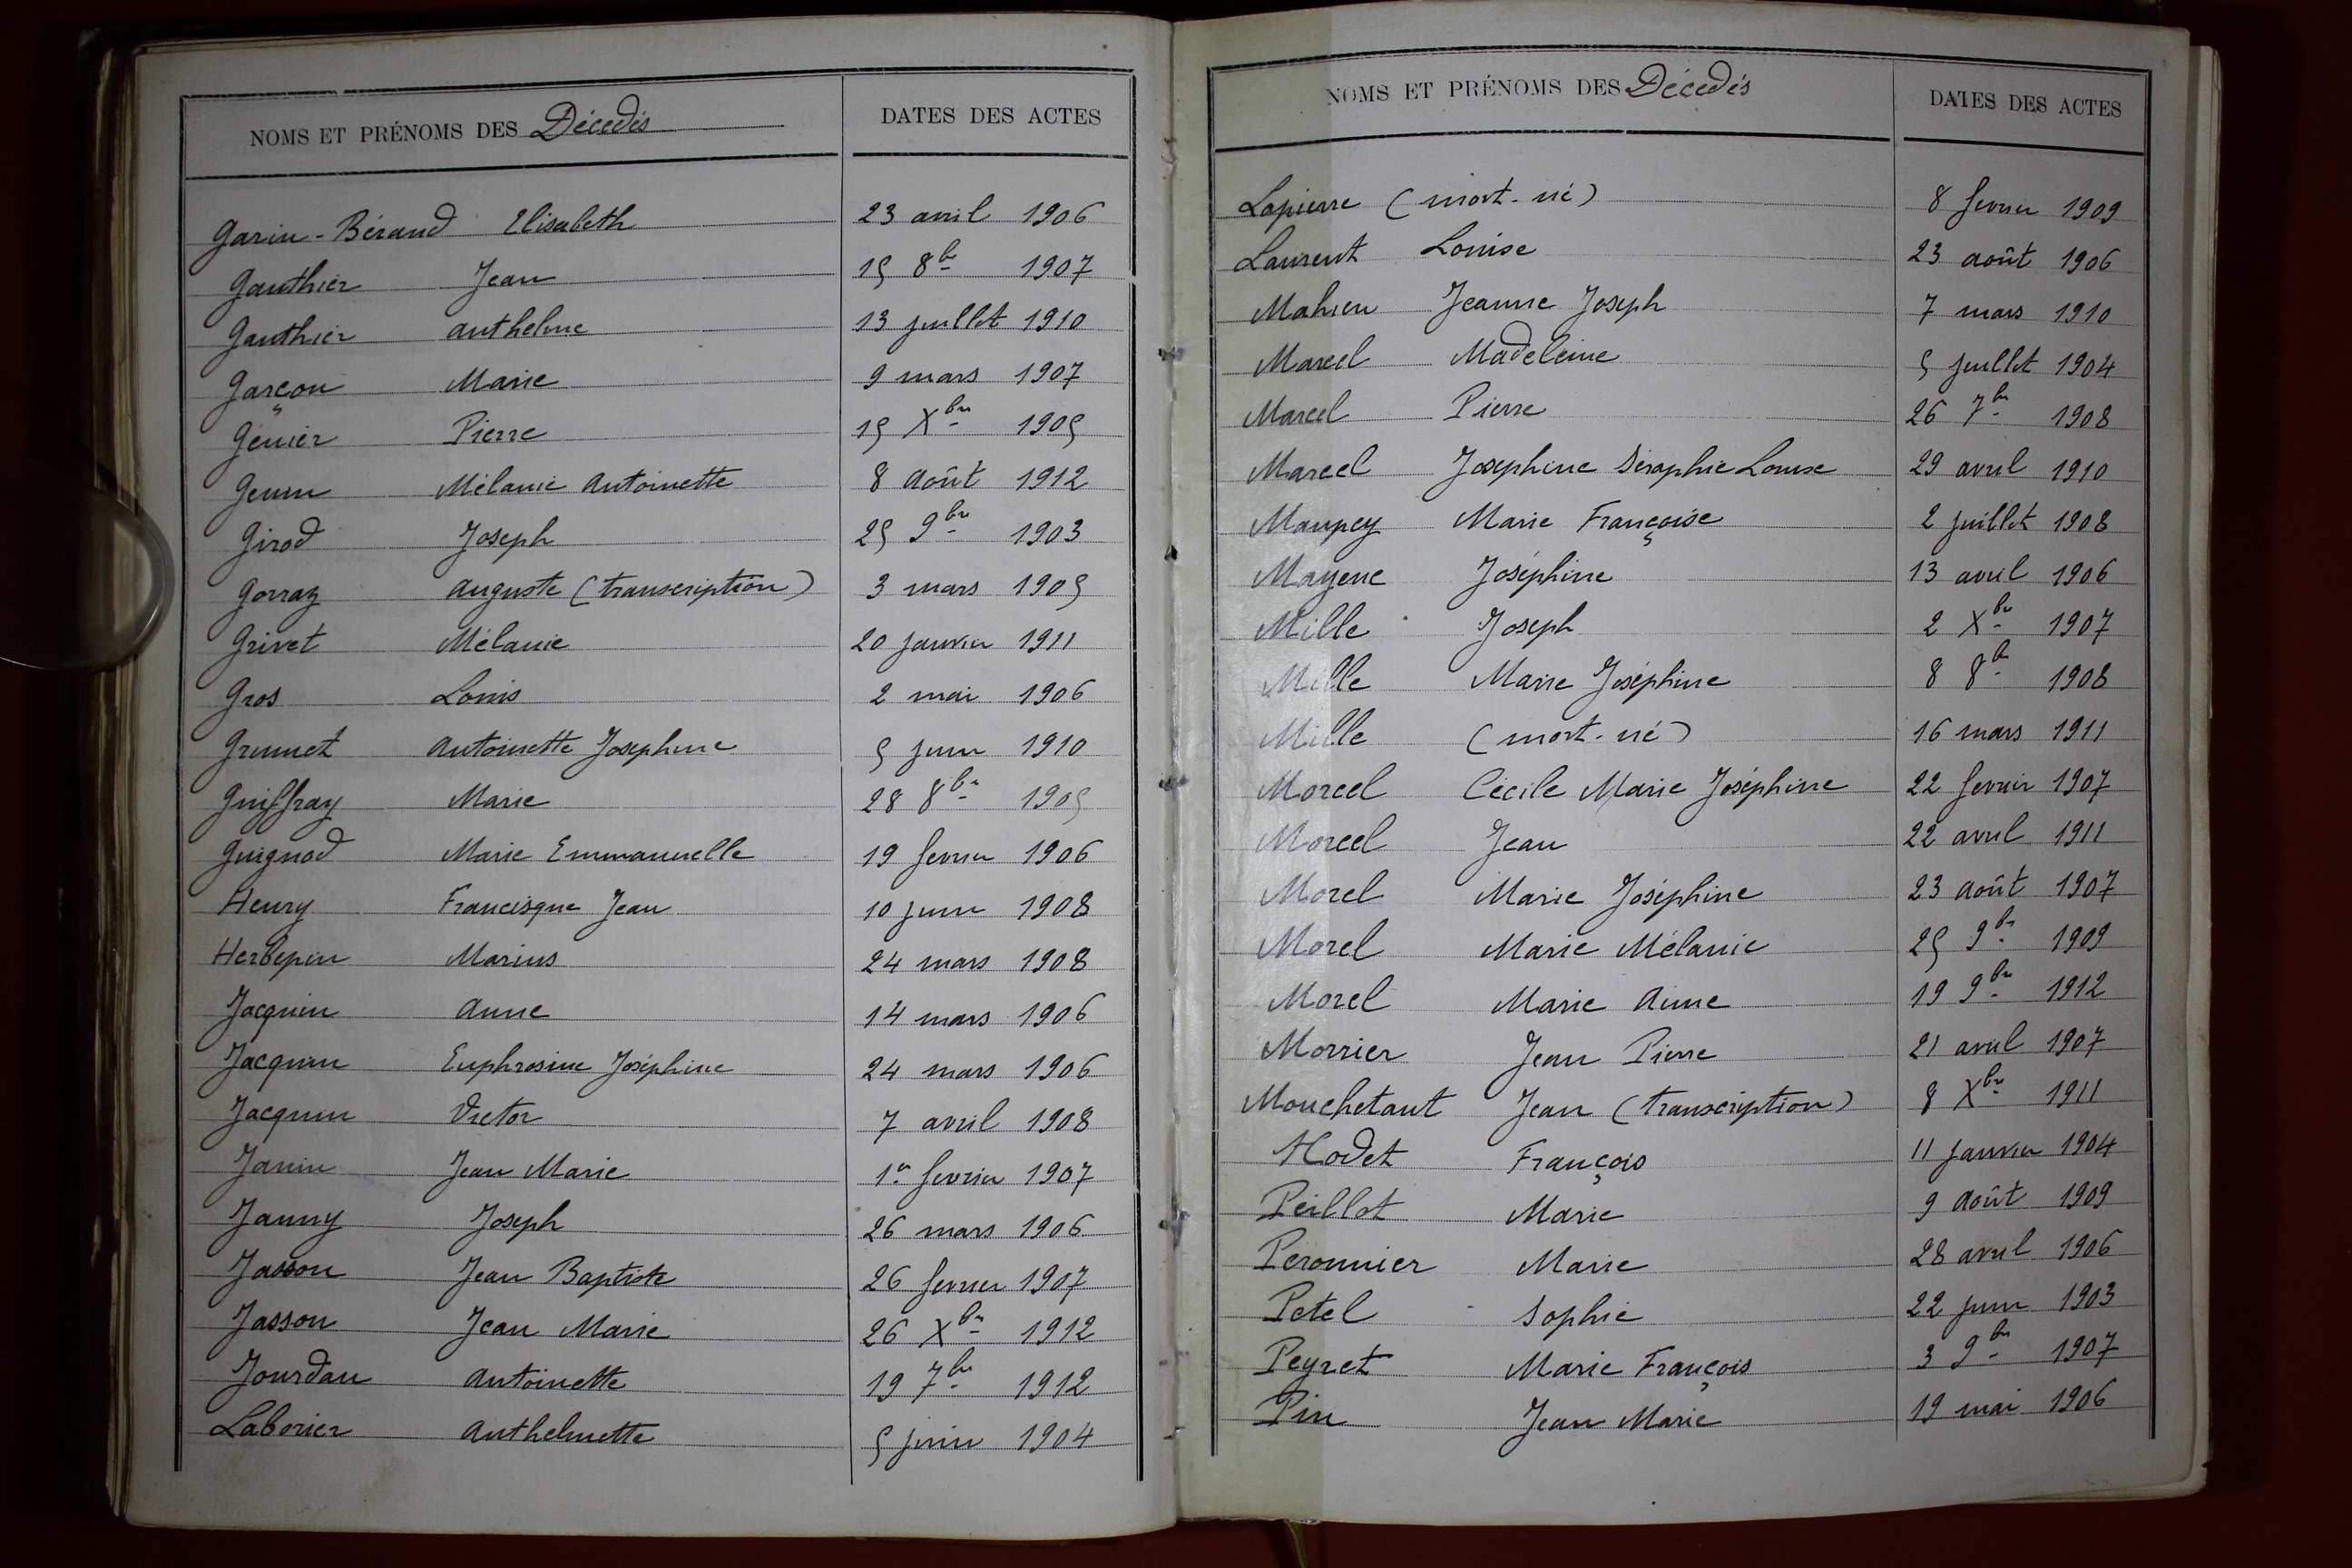 NOMS ET PRÉNOMS DES Décédés DATES DES ACTES
Garin-Béraud Elisabeth 23 avril 1906
Gauthier Jean 15 8bre 1907
Gauthier Anthelme 13 juillet 1910
Garçon Marie 9 mars 1907
Génier Pierre 15 Xbre 1905
Genin Mélanie Antoinette 8 Août 1912
Girod Joseph 25 9bre 1903
Gorraz Auguste (transcription) 3 mars 1905
Grivet Mélanie 20 janvier 1911
Gros Louis 2 mai 1906
Grumet Antoinette Josephine 5 juin 1910
Guiffray Marie 28 8bre 1905
Guignod Marie Emmanuelle 19 fevrier 1906
Henry Francisque Jean 10 juin 1908
Herbepin Marius 24 mars 1908
Jacquin Anne 14 mars 1906
Jacquin Euphrosine Joséphine 24 mars 1906
Jacquin Victor 7 avril 1908
Janin Jean Marie 1er fevrier 1907
Janny Joseph 26 mars 1906
Jasson Jean Baptiste 26 fevrier 1907
Jasson Jean Marie 26 Xbre 1912
Jourdan Antoinette 19 7bre 1912
Laborier Anthelmette 5 juin 1904
NOMS ET PRÉNOMS DES Décédés DATES DES ACTES
Lapierre (mort-né) 8 fevrier 1909
Laurent Louise 23 août 1906
Mahieu Jeanne Joseph 7 mars 1910
Marcel Madeleine 5 juillet 1904
Marcel Pierre 26 7bre 1908
Marcel Josephine Séraphie Louise 29 avril 1910
Maupey Marie Françoise 2 juillet 1908
Mayene Joséphine 13 avril 1906
Mille Joseph 2 Xbre 1907
Mille Marie Joséphine 8 8bre 1908
Mille (mort-né) 16 mars 1911
Morcel Cécile Marie Joséphine 22 fevrier 1907
Morcel Jean 22 avril 1911
Morel Marie Joséphine 23 août 1907
Morel Marie Mélanie 25 9bre 1909
Morel Marie Anne 19 9bre 1912
Morrier Jean Pierre 21 avril 1907
Mouchetant Jean (transcription) 8 Xbre 1911
Nodet François 11 janvier 1904
Peillot Marie 9 Août 1909
Peronnier Marie 28 avril 1906
Petel Sophie 22 juin 1903
Peyret Marie François 3 9bre 1907
Pin Jean Marie 19 mai 1906